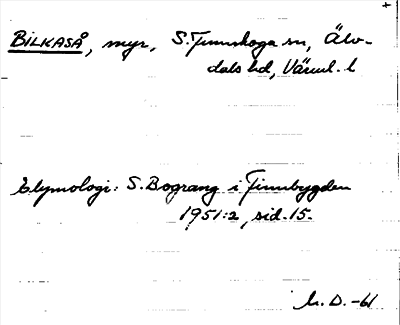 BILKASÅ, myr, S. Finnskoga sn, Älv-
dals hd, Värml. l
Etymologi: S. Bograng i Finnbygden
1951:2, sid. 15.
M. D. -61